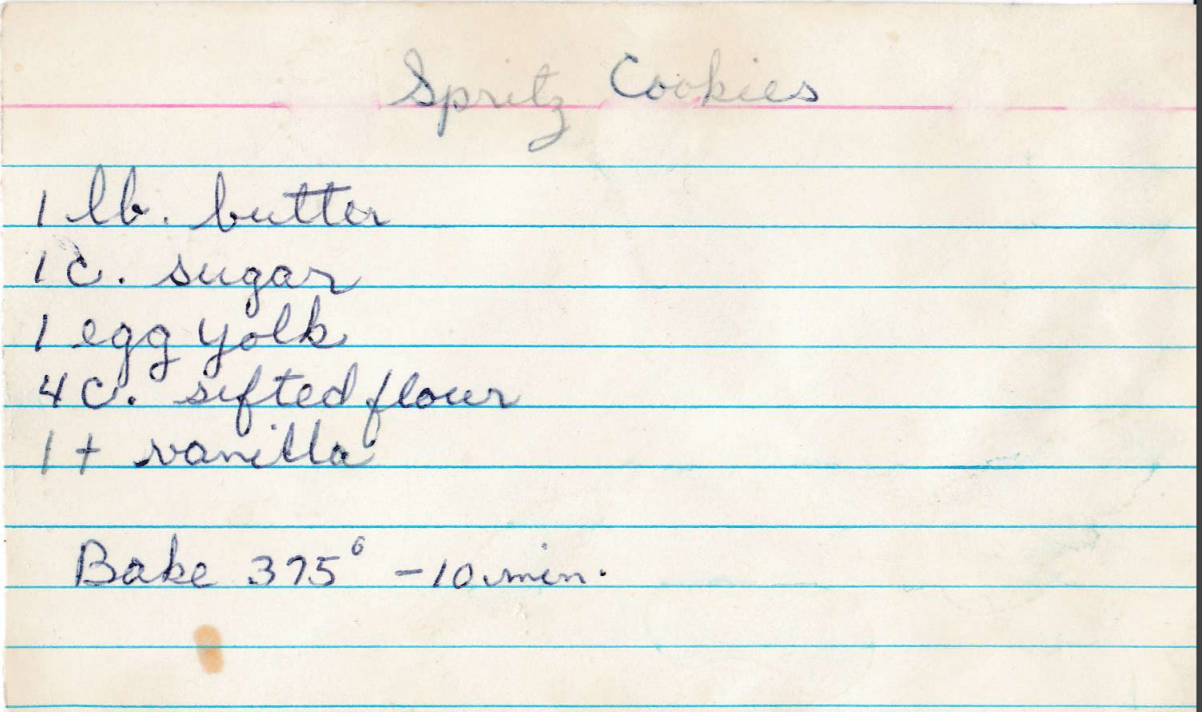 Spritz Cookies
1 lb. butter
1 c. sugar
1 egg yolk
4 c. sifted flour
1 t vanilla
Bake 375° - 10 min.